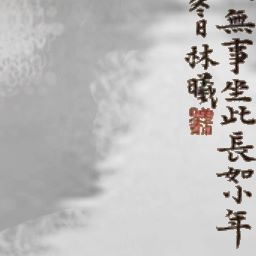 無事坐此長如小年
冬日林曦